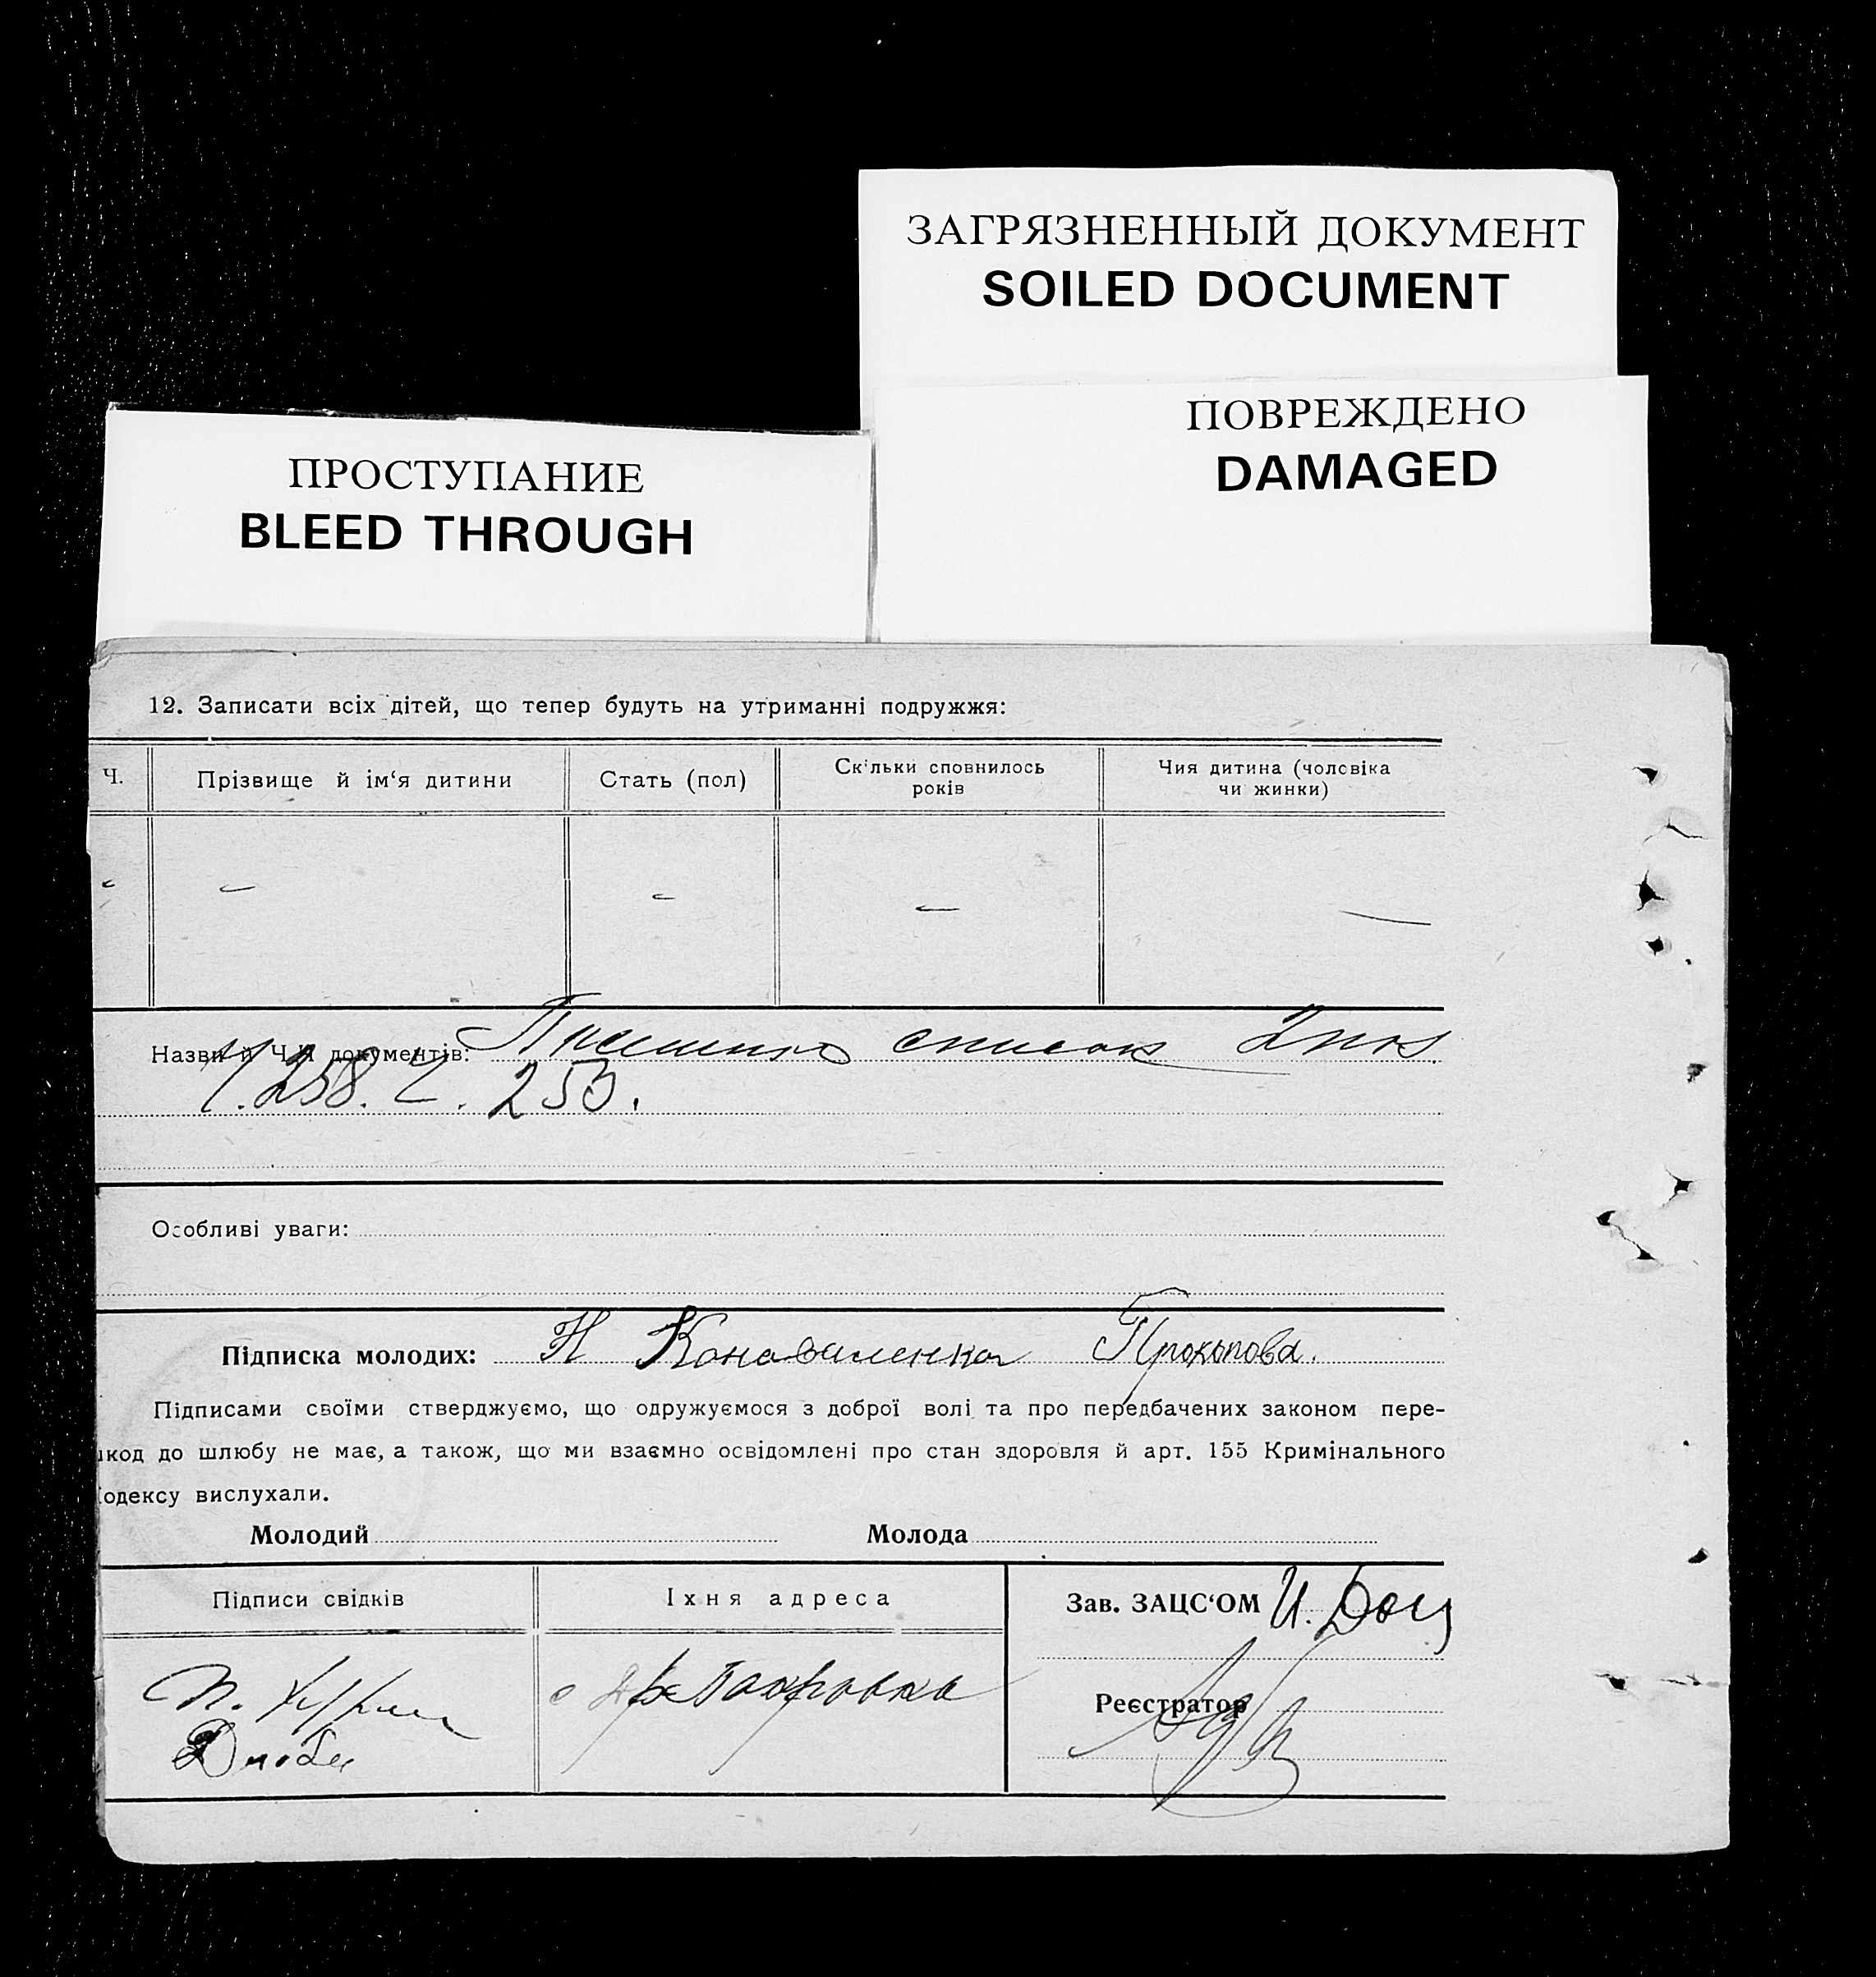 ЗАГРЯЗНЕННЫЙ ДОКУМЕНТ
SOILED DOCUMENT
ПОВРЕЖДЕНО
DAMAGED
ПРОСТУПАНИЕ
BLEED THROUGH
12. Записати всіх дітей, що тепер будуть на утриманні подружжя:
Ч. Прізвище й ім‘я дитини Стать (пол) Скільки сповнилось років Чия дитина (чоловіка чи жинки)
- - - - -
Назви й Ч.Ч документів: список
258. 253.
Особливі уваги:
Підписка молодих: Н Коноваленко Прокопова.
Підписами своїми стверджуємо, що одружуємося з доброї волі та про передбачених законом пере-
шкод до шлюбу не має, а також, що ми взаємно освідомлені про стан здоровля й арт. 155 Кримінального
кодексу вислухали.
Молодий Молода
Підписи свідків Їхня адреса Зав. ЗАЦС‘ОМ И.
Покровка
Реєстратор